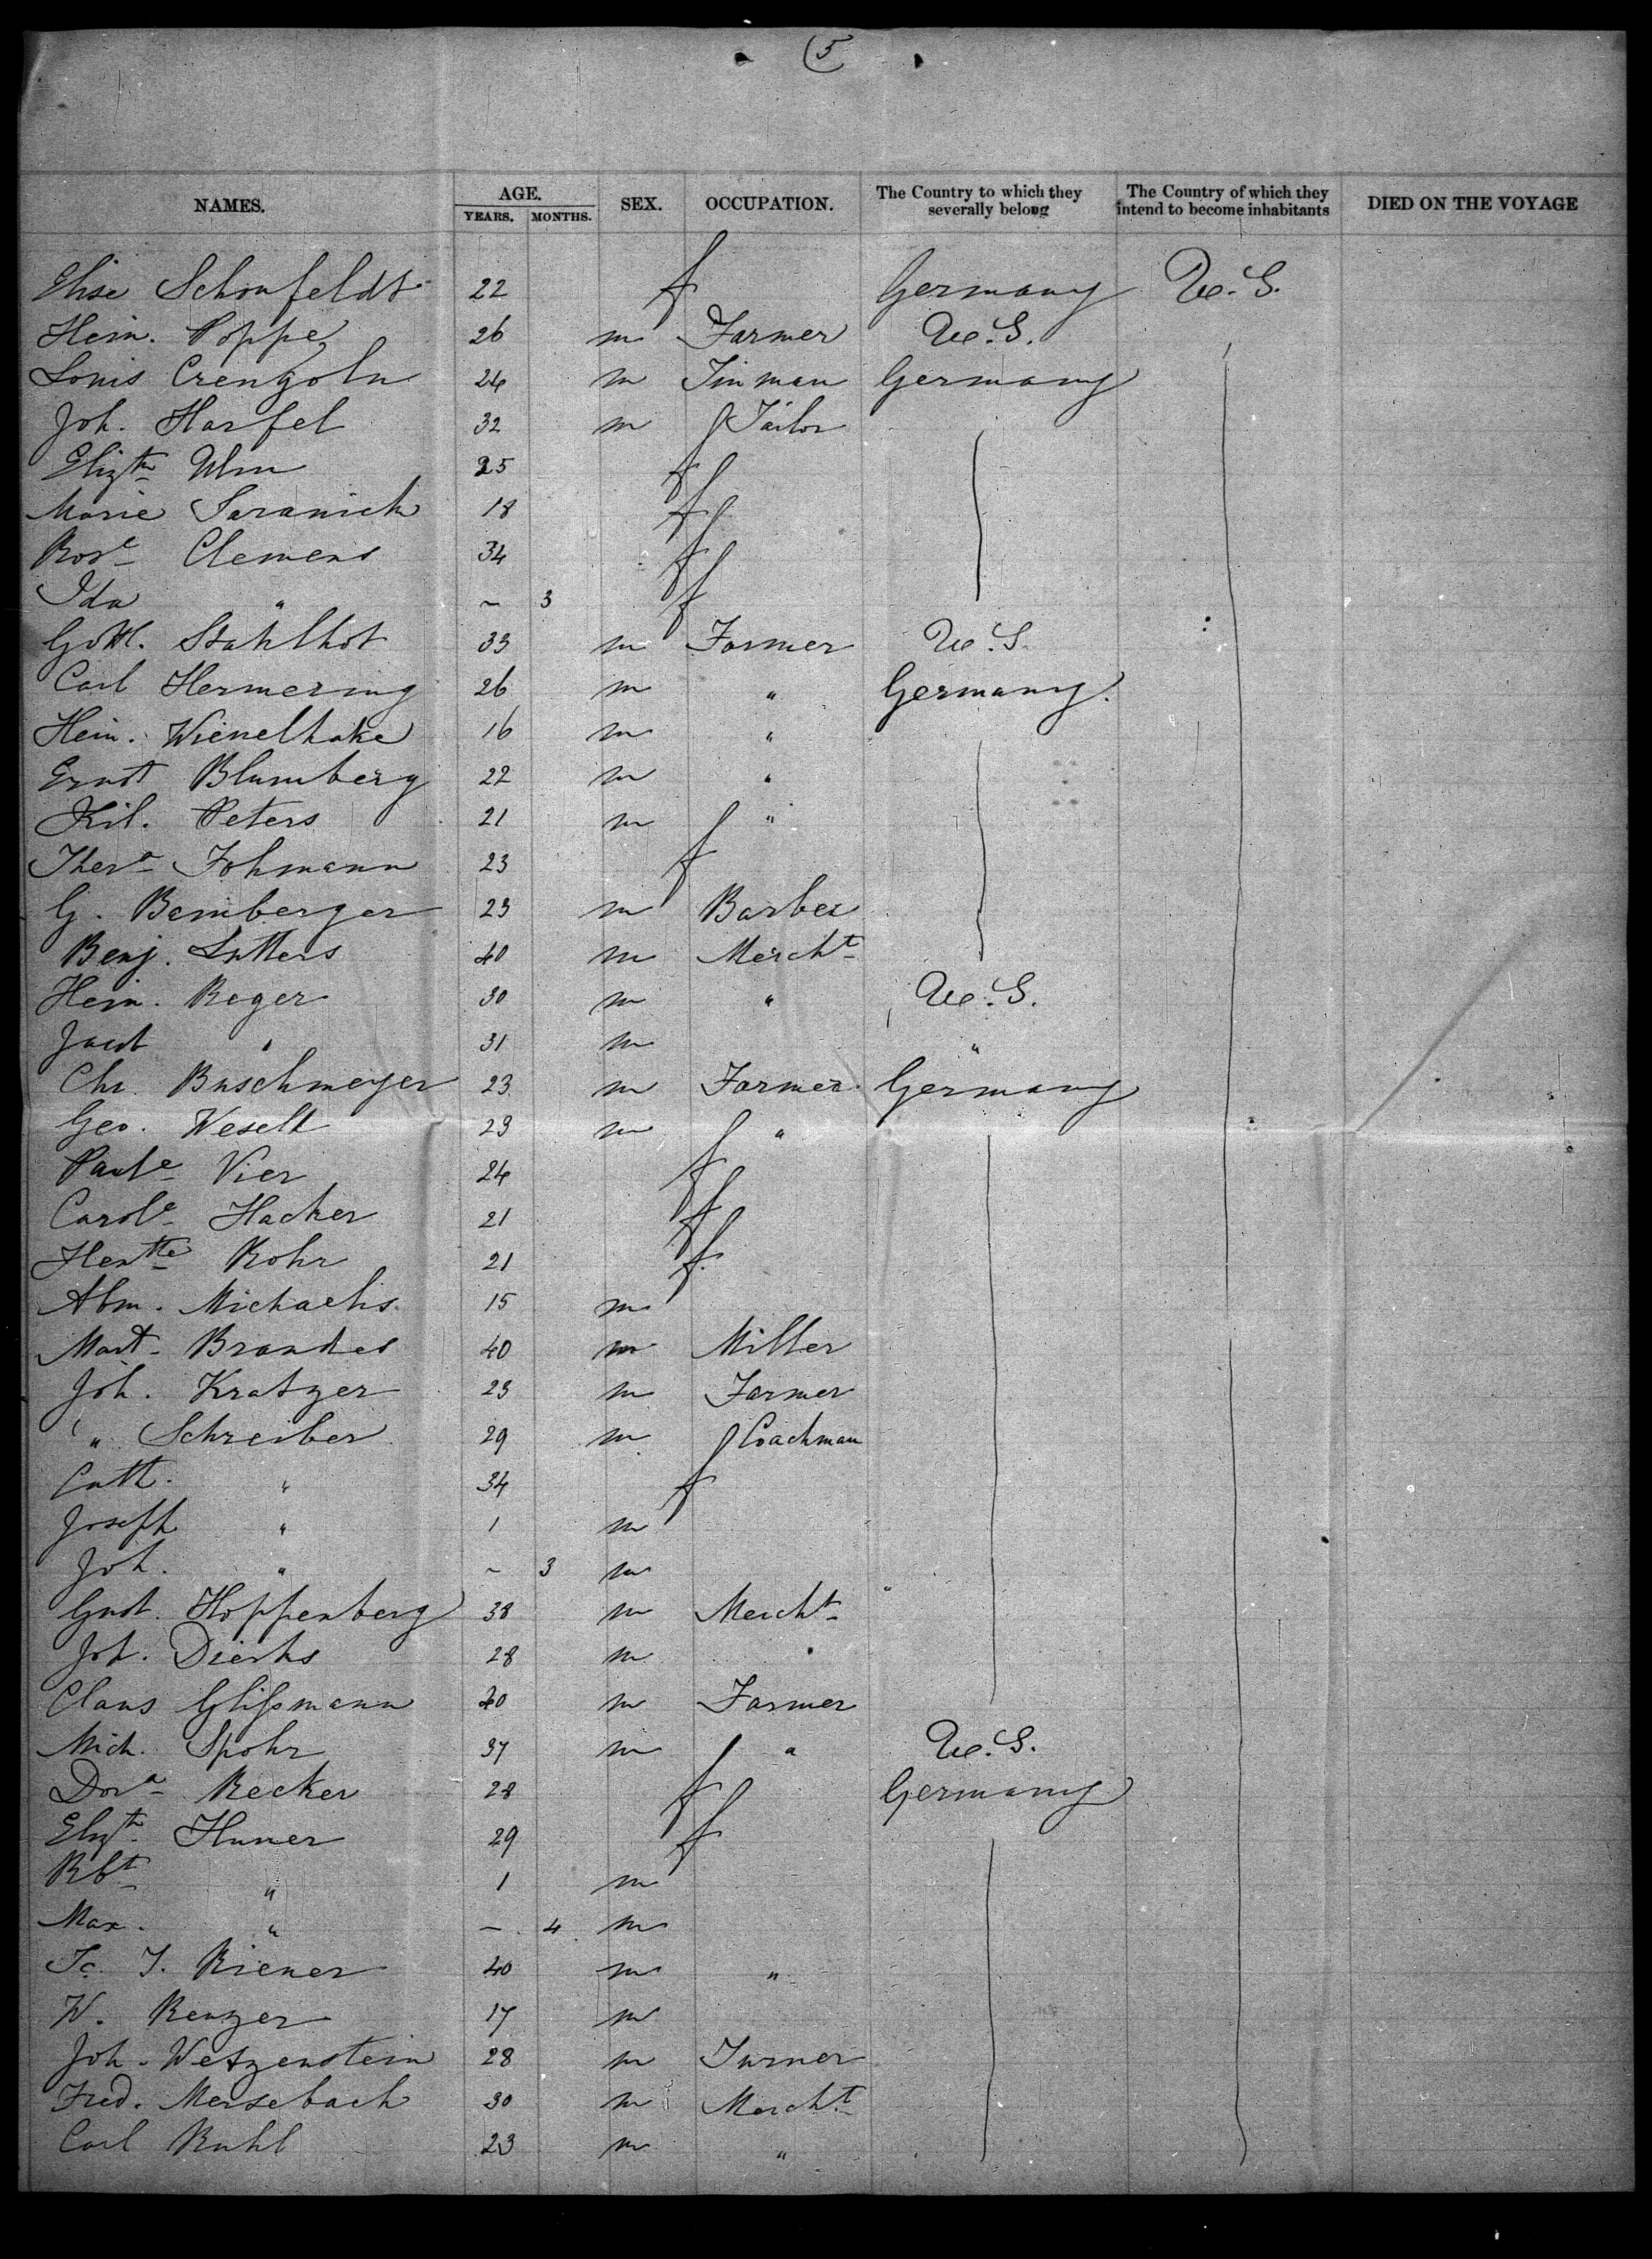 5
NAMES. AGE. YEARS. MONTHS. SEX. OCCUPATION. The Country to which they severally belong The Country of which they intend to become inhabitants DIED ON THE VOYAGE
Elise Schonfeldt 22 f Germany U.S.
Hein. Poppe 26 m Farmer U.S.
Louis 24 m Tinman Germany
Joh. Harfel 32 m Tailor
Elizth Ulm 25 f
Marie Saranich 18 f
Rose Clemens 34 f
Ida " ~ 3 f
Gottl. Stahlhot 33 m Farmer U.S.
Carl Hermering 26 m " Germany.
Hein. Wienelhake 16 m "
Ernst Blumberg 22 m "
Kil. Peters 21 m "
Thera Fohmann 23 f
G. Bamberger 23 m Barber
Benj. Lutters 40 m Mercht
Hein. Reger 30 m " U.S.
Jacob " 31 m "
Chr. Buschmeyer 23 m Farmer Germany
Geo. Weselt 29 m "
Paule Vier 24 f
Carole Hacker 21 f
Hentte Rohr 21 f
Abm. Michaelis 15 m
Mart. Brandes 40 m Miller
Joh. Kratzer 23 m Farmer
" Schreiber 29 m Coachman
Cath. " 34 f
Joseph " 1 m
Joh. " ~ 3 m
Gust. Hoppenberg 38 m Mercht
Joh. Dierks 28 m
Claus Glissmann 40 m Farmer
Mich. Spohr 37 m " U.S.
Dora Recker 28 f Germany
Elizth Huner 29 f
Rbt " 1 m
Max. " – 4 m
J. Riener 40 m "
W. Renzer 17 m
Joh. Wetzenstein 28 m Turner
Fred. Mersebach 30 m Mercht
Carl Ruhl 23 m "